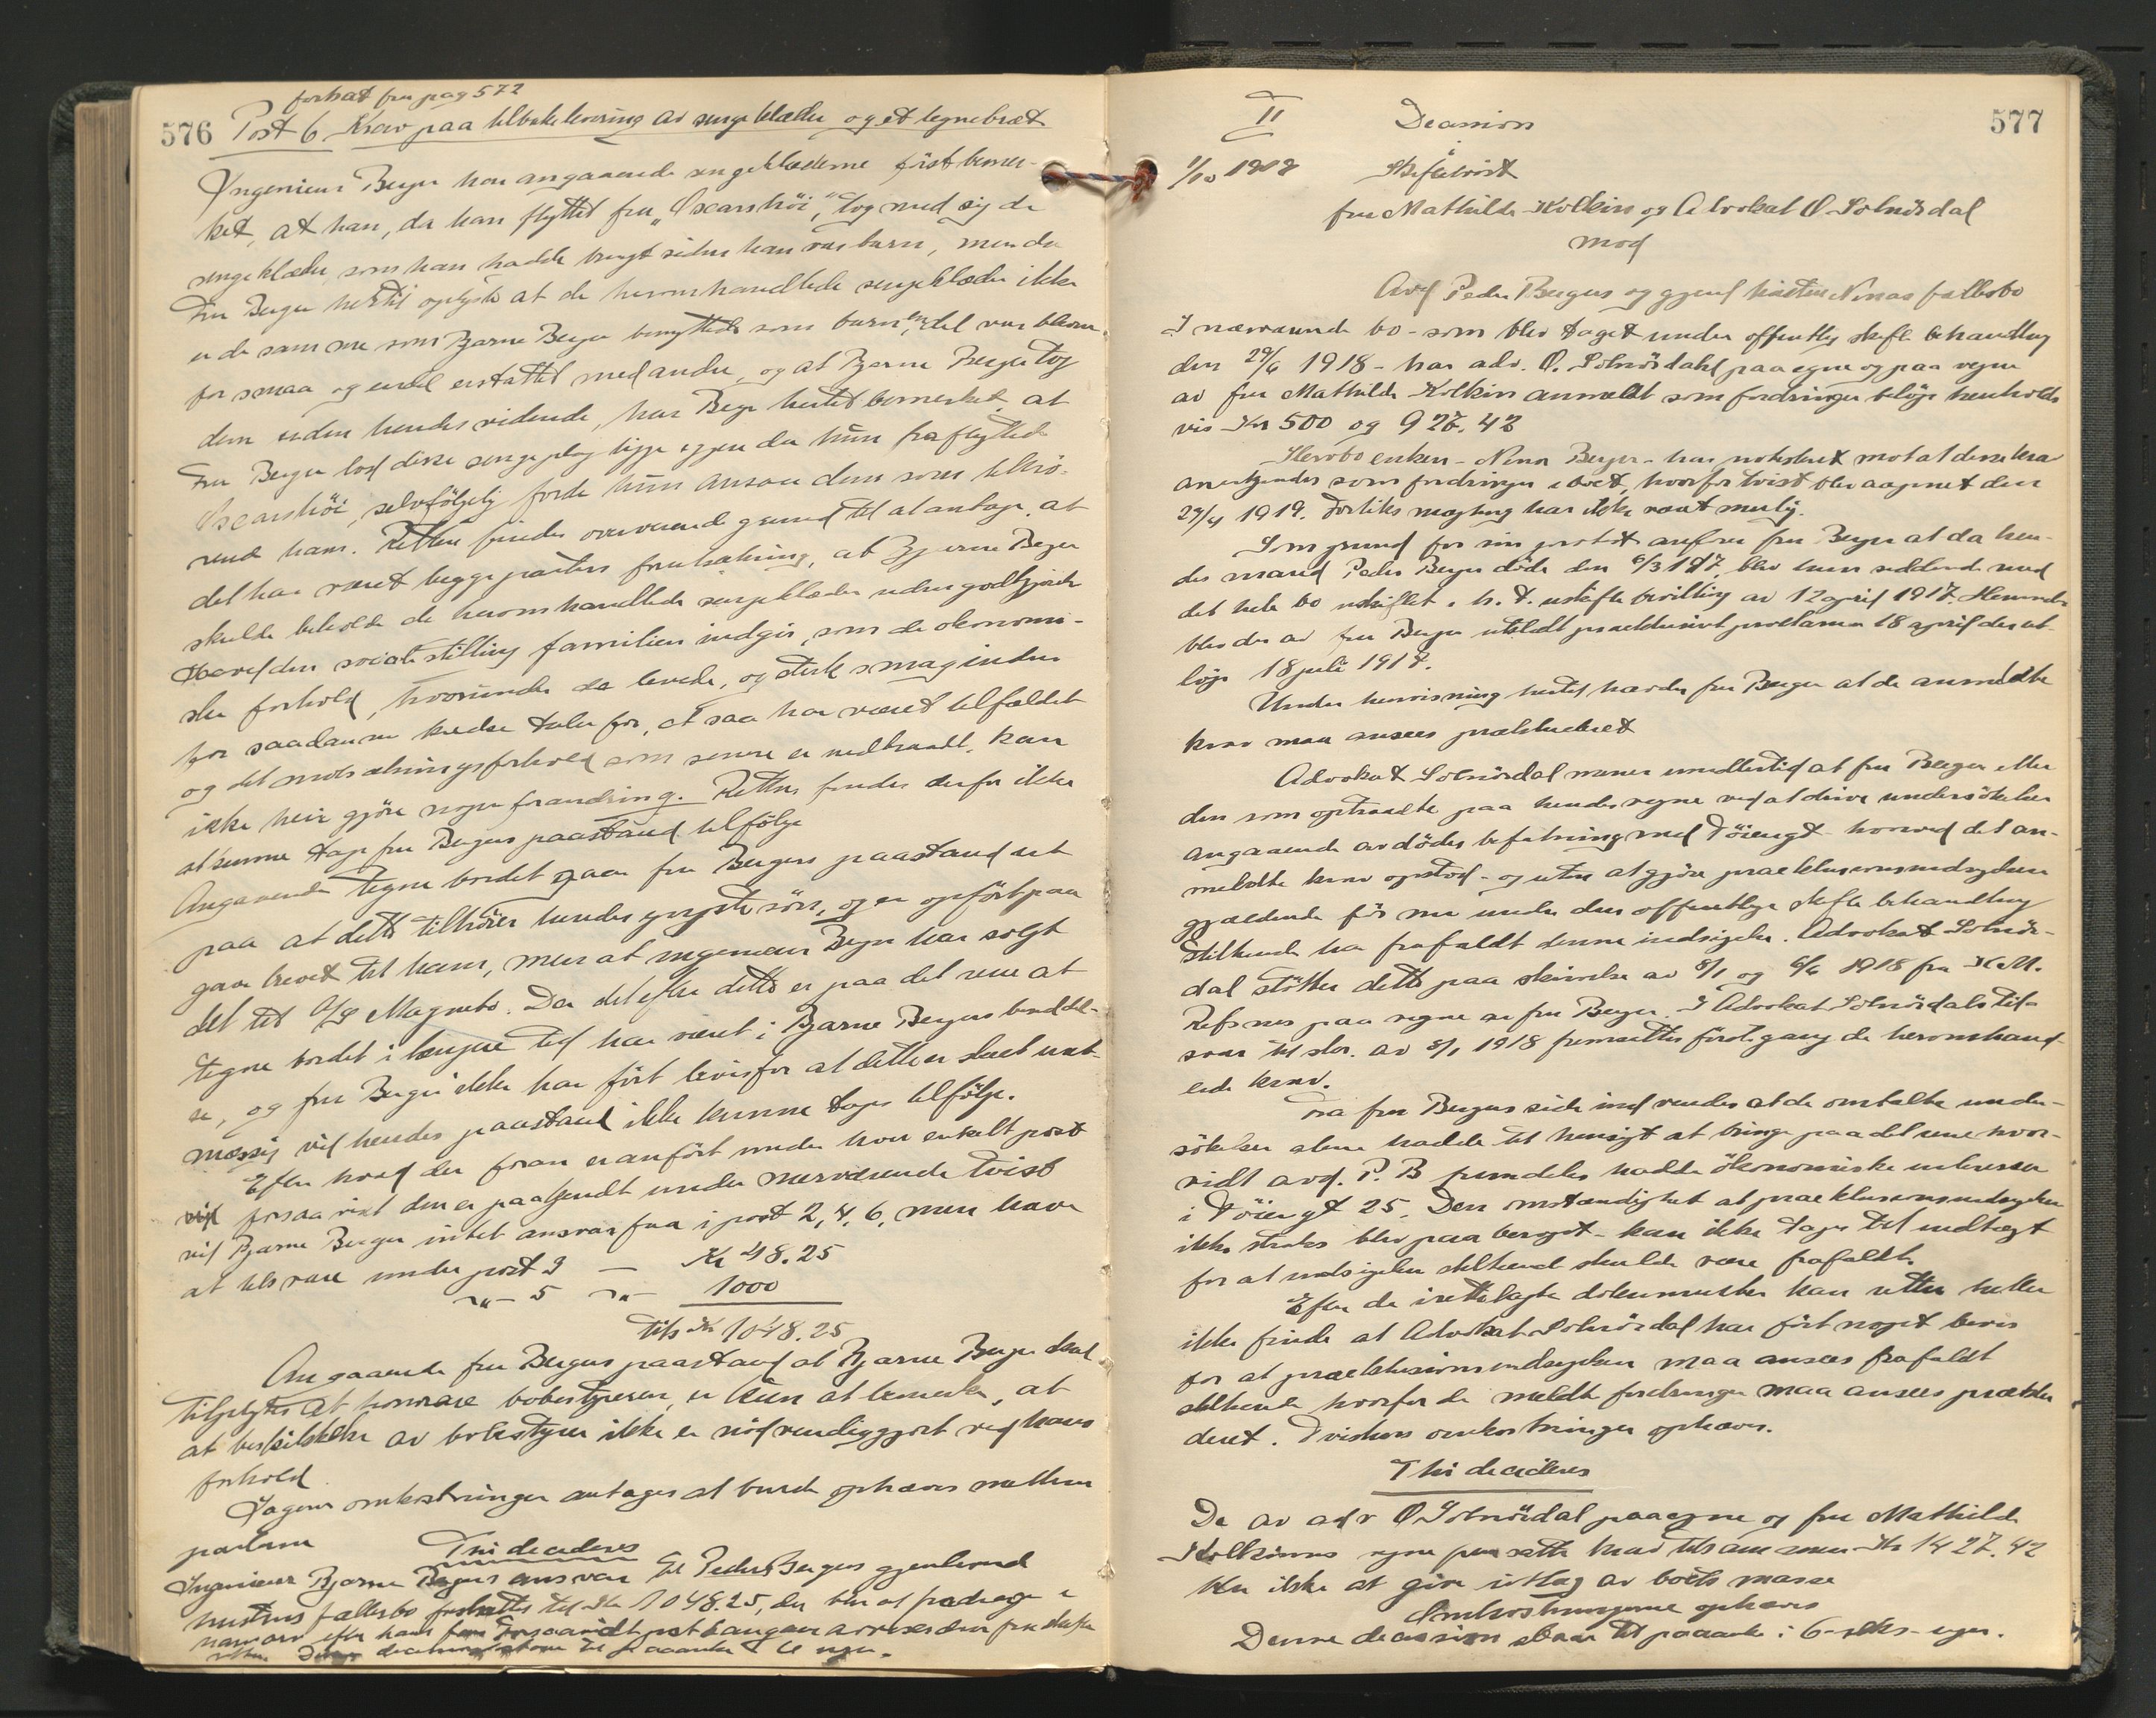 fortsat fra pag 572
576 Post 6 Krav paa tilbakelevering av sengeklæder og et tegnebræt
Ingeniør Berger har angaaende sengeklæderne først bemer-
ket, at han, da han flyttet fra "Oscarshöi", tog med sig de
sengeklæder, som han hadde brugt siden han var barn, men da
Fru Berger hertil oplyste at de heromhandlede sengeklæder ikke
er de samme som Bjarne Berger benyttede som barn, en del var blevne
for smaa og endel erstattet med andre, og at Bjarne Berger tog
dem uden hendes vidende, har Berger hertil bemerket, at
Fru Berger lod disse sengeplag ligge igjen da hun fraflyttede
Oscarshöi, selvfölgelig fordi hun ansaa dem som tilhö-
rende ham. Retten finder overveiende grund til at antage, at
det har været begge parters forutsætning, at Bjarne Berger
skulde beholde de heromhandlede sengeklæder uden godtgjörelse
Saavel den sociale stilling familien indgir, som de økonomi-
ske forhold, hvorunder de levede, og skik smag inden
for saadanne kredse taler for, at saa har været tilfældet
og det motsætningsforhold som senere er indtraadt, kan
ikke heri gjöre nogen forandring. Retten finder derfor ikke
at kunne tage fru Bergers paastand tilfölge
Angaaende tegnebordet gaar fru Bergers paastand ut
paa at dette tilhörer hendes yngste sön, og er opfört paa
gave brevet til ham, men at ingeniör Berger har solgt
det til A/S Magneto. Da det efter dette er paa det rene at
tegnebordet i længere tid har været i Bjarne Bergers besiddel-
se, og fru Berger ikke har fört bevis for at dette er sket uret-
mæssig vil hendes paastand ikke kunne tages tilfölge.
Efter hvad der foran er anfört under hver enkelt post
forsaavidt den er paakjendt under nærværende tvist
vil Bjarne Berger intet ansvar faa i post 2, 4, 6, men have
at tilsvare under post 3 — Kr 48.25
—"— 5 —"— 1000
Tils Kr 1048.25
Angaaende fru Bergers paastand at Bjarne Berger skal
tilpligtes at honorare bobestyreren, er kun at bemerke, at
at beskikkelse av bobestyrer ikke er nødvendiggjort ved hans
forhold
Sagens omkostninger antages at burde ophæves mellem
parterne
Thi decideres
Ingeniør Bjarne Bergers ansvar til Peder Bergers gjenlevende
hustrus fællesbo fastsættes til Kr 1048.25, der blir at fradrage i
hans arv efter hans far forsaavidt
577
II Decision
1/10 1919 Skiftetvist
fru Mathilde Kolkin og Advokat O. Solnørdal
mod
Avd Peder Bergers og gjenl hustru Ninas fællesbo
I nærværende bo - som blev taget under offentlig skifte behandling
den 29/6 1918 - har adv. O. Solnørdal paa egne og paa vegne
av fru Mathilde Kolkin anmeldt som fordringer beløp henholds
vis Kr 500 og 927.42
Herobo enken - Nina Berger - har protestert mot at disse krav
anerkjendes som fordringer i boet, hvorfor tvist blev aapnet den
29/4 1919. Forliks mægling har ikke været mulig.
Som grund for sin protest anfører fru Berger at da hen-
des mand Peder Berger døde den 6/3 1917, blev hun siddende med
det hele bo uskiftet i h. t. uskifte bevilling av 12 april 1917. Herunder
blev der av fru Berger utstedt præklusivt proclama 18 april der ut-
løp 18 juli 1917.
Under henvisning hertil hævder fru Berger at de anmeldte
krav maa ansees præcluderet
Advokat Solnørdal mener imidlertid at fru Berger eller
den som optraadte paa hendes vegne ved at drive undersøkelser
angaaende avdødes befatning med Töiengt - hvorved det an-
meldte krav opstod - og uten at gjøre præklusionsindsigelsen
gjældende før nu under den offentlige skifte behandling
stiltiende har frafaldt denne indsigelse. Advokat Solnør-
dal støtter dette paa skrivelse av 8/1 og 6/6 1918 fra K.M.
Refsnes paa vegne av fru Berger. I Advokat Solnørdals til-
svar til skr. av 8/1 1918 fremsættes første gang de heromhand-
lede krav.
Fra fru Bergers side indvendes at de omtalte under-
søkelser alene hadde til hensigt at bringe paa det rene hvor-
vidt avd. P. B fremdeles hadde økonomiske interesser
i Töiengt 25. Den omstændighet at præklusionsindsigelsen
ikke straks blev paaberopt - kan ikke tages til indtægt
for at indsigelsen stiltiende skulde være frafaldt.
Efter de irettelagte dokumenter kan retten heller
ikke finde at Advokat Solnørdal har ført noget bevis
for at præklusionsindsigelsen maa ansees frafaldt
stiltiende hvorfor de meldte fordringer maa ansees præklu
deret. Tvistens omkostninger ophæves.
Thi decideres
De av adv O Solnørdal paa egne og fru Mathilde
Kolkinns vegne fremsatte krav tilsammen Kr 1427.42
blir ikke at give utlæg av boets masse
Omkostningerne ophæves
Denne decision staar til paaanke i 6-seks-uger.